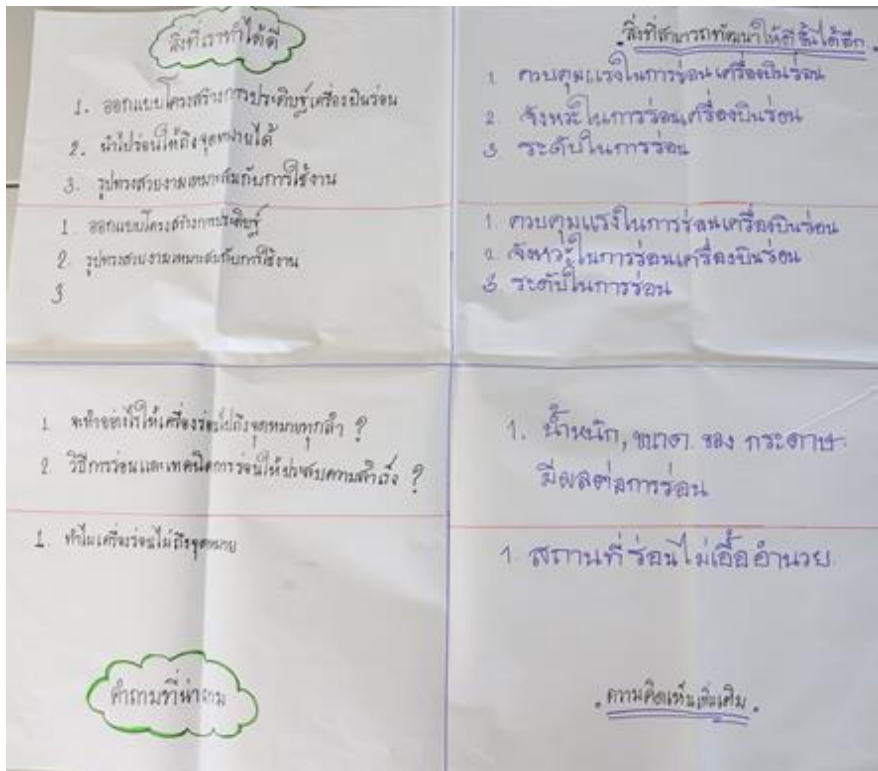 สิ่งที่เราทำได้ดี
1. ออกแบบโครงสร้างการประดิษฐ์เครื่องบินร่อน
2. นำไปร่อนให้ถึงจุดหมายได้
3. รูปทรงสวยงามเหมาะสมกับการใช้งาน
1 ออกแบบโครงสร้างการประดิษฐ์
2. รูปทรงสวยงามเหมาะสมกับการใช้งาน
3
สิ่งที่สามารถพัฒนาให้ดีขึ้นได้อีก
1 ควบคุมแรงในการร่อนเครื่องบินร่อน
2 จังหวะในการร่อนเครื่องบินร่อน
3 ระดับในการร่อน
1. ควบคุมแรงในการร่อนเครื่องบินร่อน
2 จังหวะในการร่อนเครื่องบินร่อน
3. ระดับในการร่อน
1 จะทำอย่างไรให้เครื่องร่อนไปถึงจุดหมายทุกลำ ?
2 วิธีการร่อนและเทคนิคการร่อนให้ประสบความสำเร็จ ?
1. ทำไมเครื่องร่อนไม่ถึงจุดหมาย
คำถามที่น่าถาม
1. น้ำหนัก, ขนาด ของ กระดาษ
มีผลต่อการร่อน
1 สถานที่ร่อนไม่เอื้ออำนวย
ความคิดเห็นเพิ่มเติม